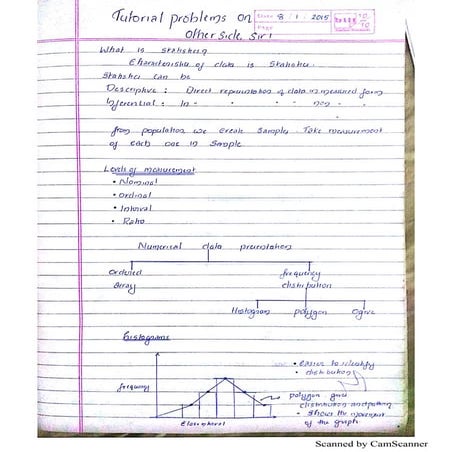 Tutorial problems on
Date 8 / 1 / 2015
Page
other side, Sir!
What is Statistics
Characteristics of data is Statistics.
Statistics can be
Descriptive : Direct representation of data in measured form
Inferential : In- " " " non "
from population we create Sample. Take measurement
of each one in Sample
Levels of measurement
• Nominal
• ordinal
• Interval
• Ratio
Numerical data presentation
Ordered
array
frequency
distribution
Histogram polygon Ogive
Histograms
frequency
Class interval
• easier to identify
• distribution
polygon
distribution and
• Shows the movement
of the graph
Scanned by CamScanner